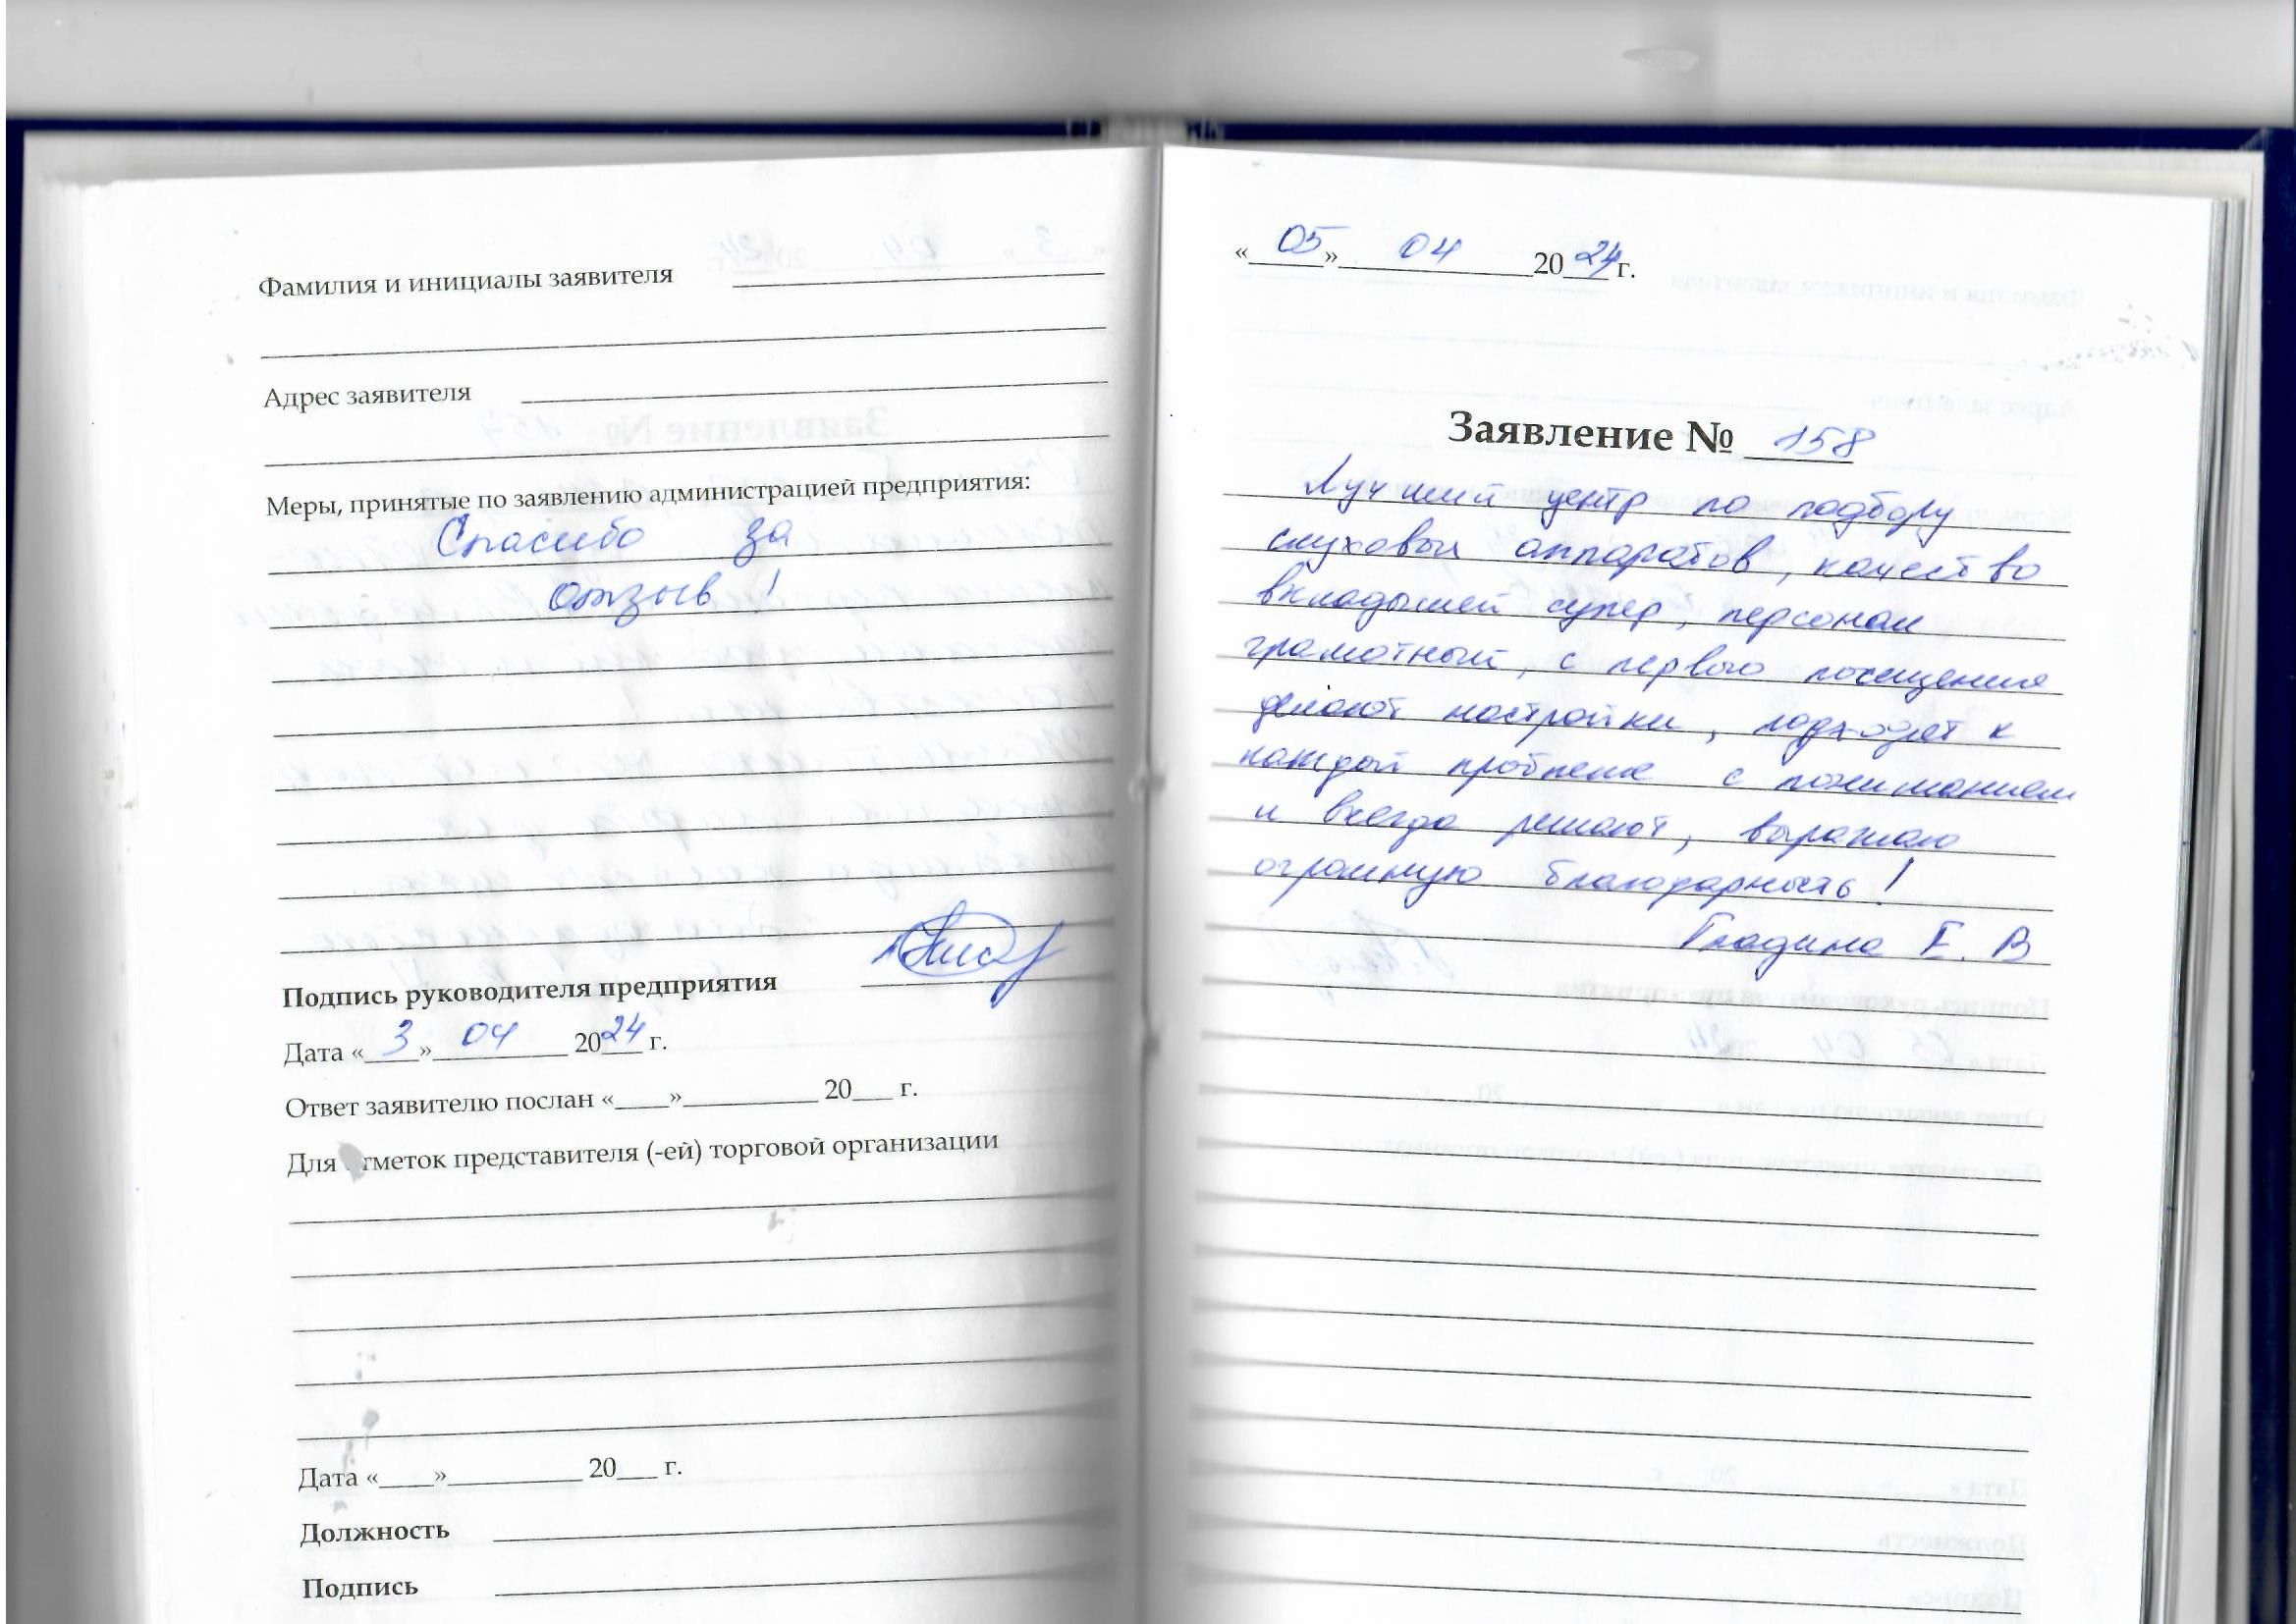 Фамилия и инициалы заявителя
Адрес заявителя
Меры, принятые по заявлению администрацией предприятия:
Спасибо за
отзыв!
Подпись руководителя предприятия
Дата «3» 04 2024 г.
Ответ заявителю послан «____»__________ 20___ г.
Для отметок представителя (-ей) торговой организации
Дата «____»__________ 20___ г.
Должность
Подпись
«05» 04 2024 г.
Заявление № 158
Лучший центр по подбору
слуховых аппаратов, качество
вкладышей супер, персонал
грамотный, с первого посещения
делают настройки, подходят к
каждой проблеме с пониманием
и всегда решают, выражаю
огромную благодарность!
Гладина Е. В